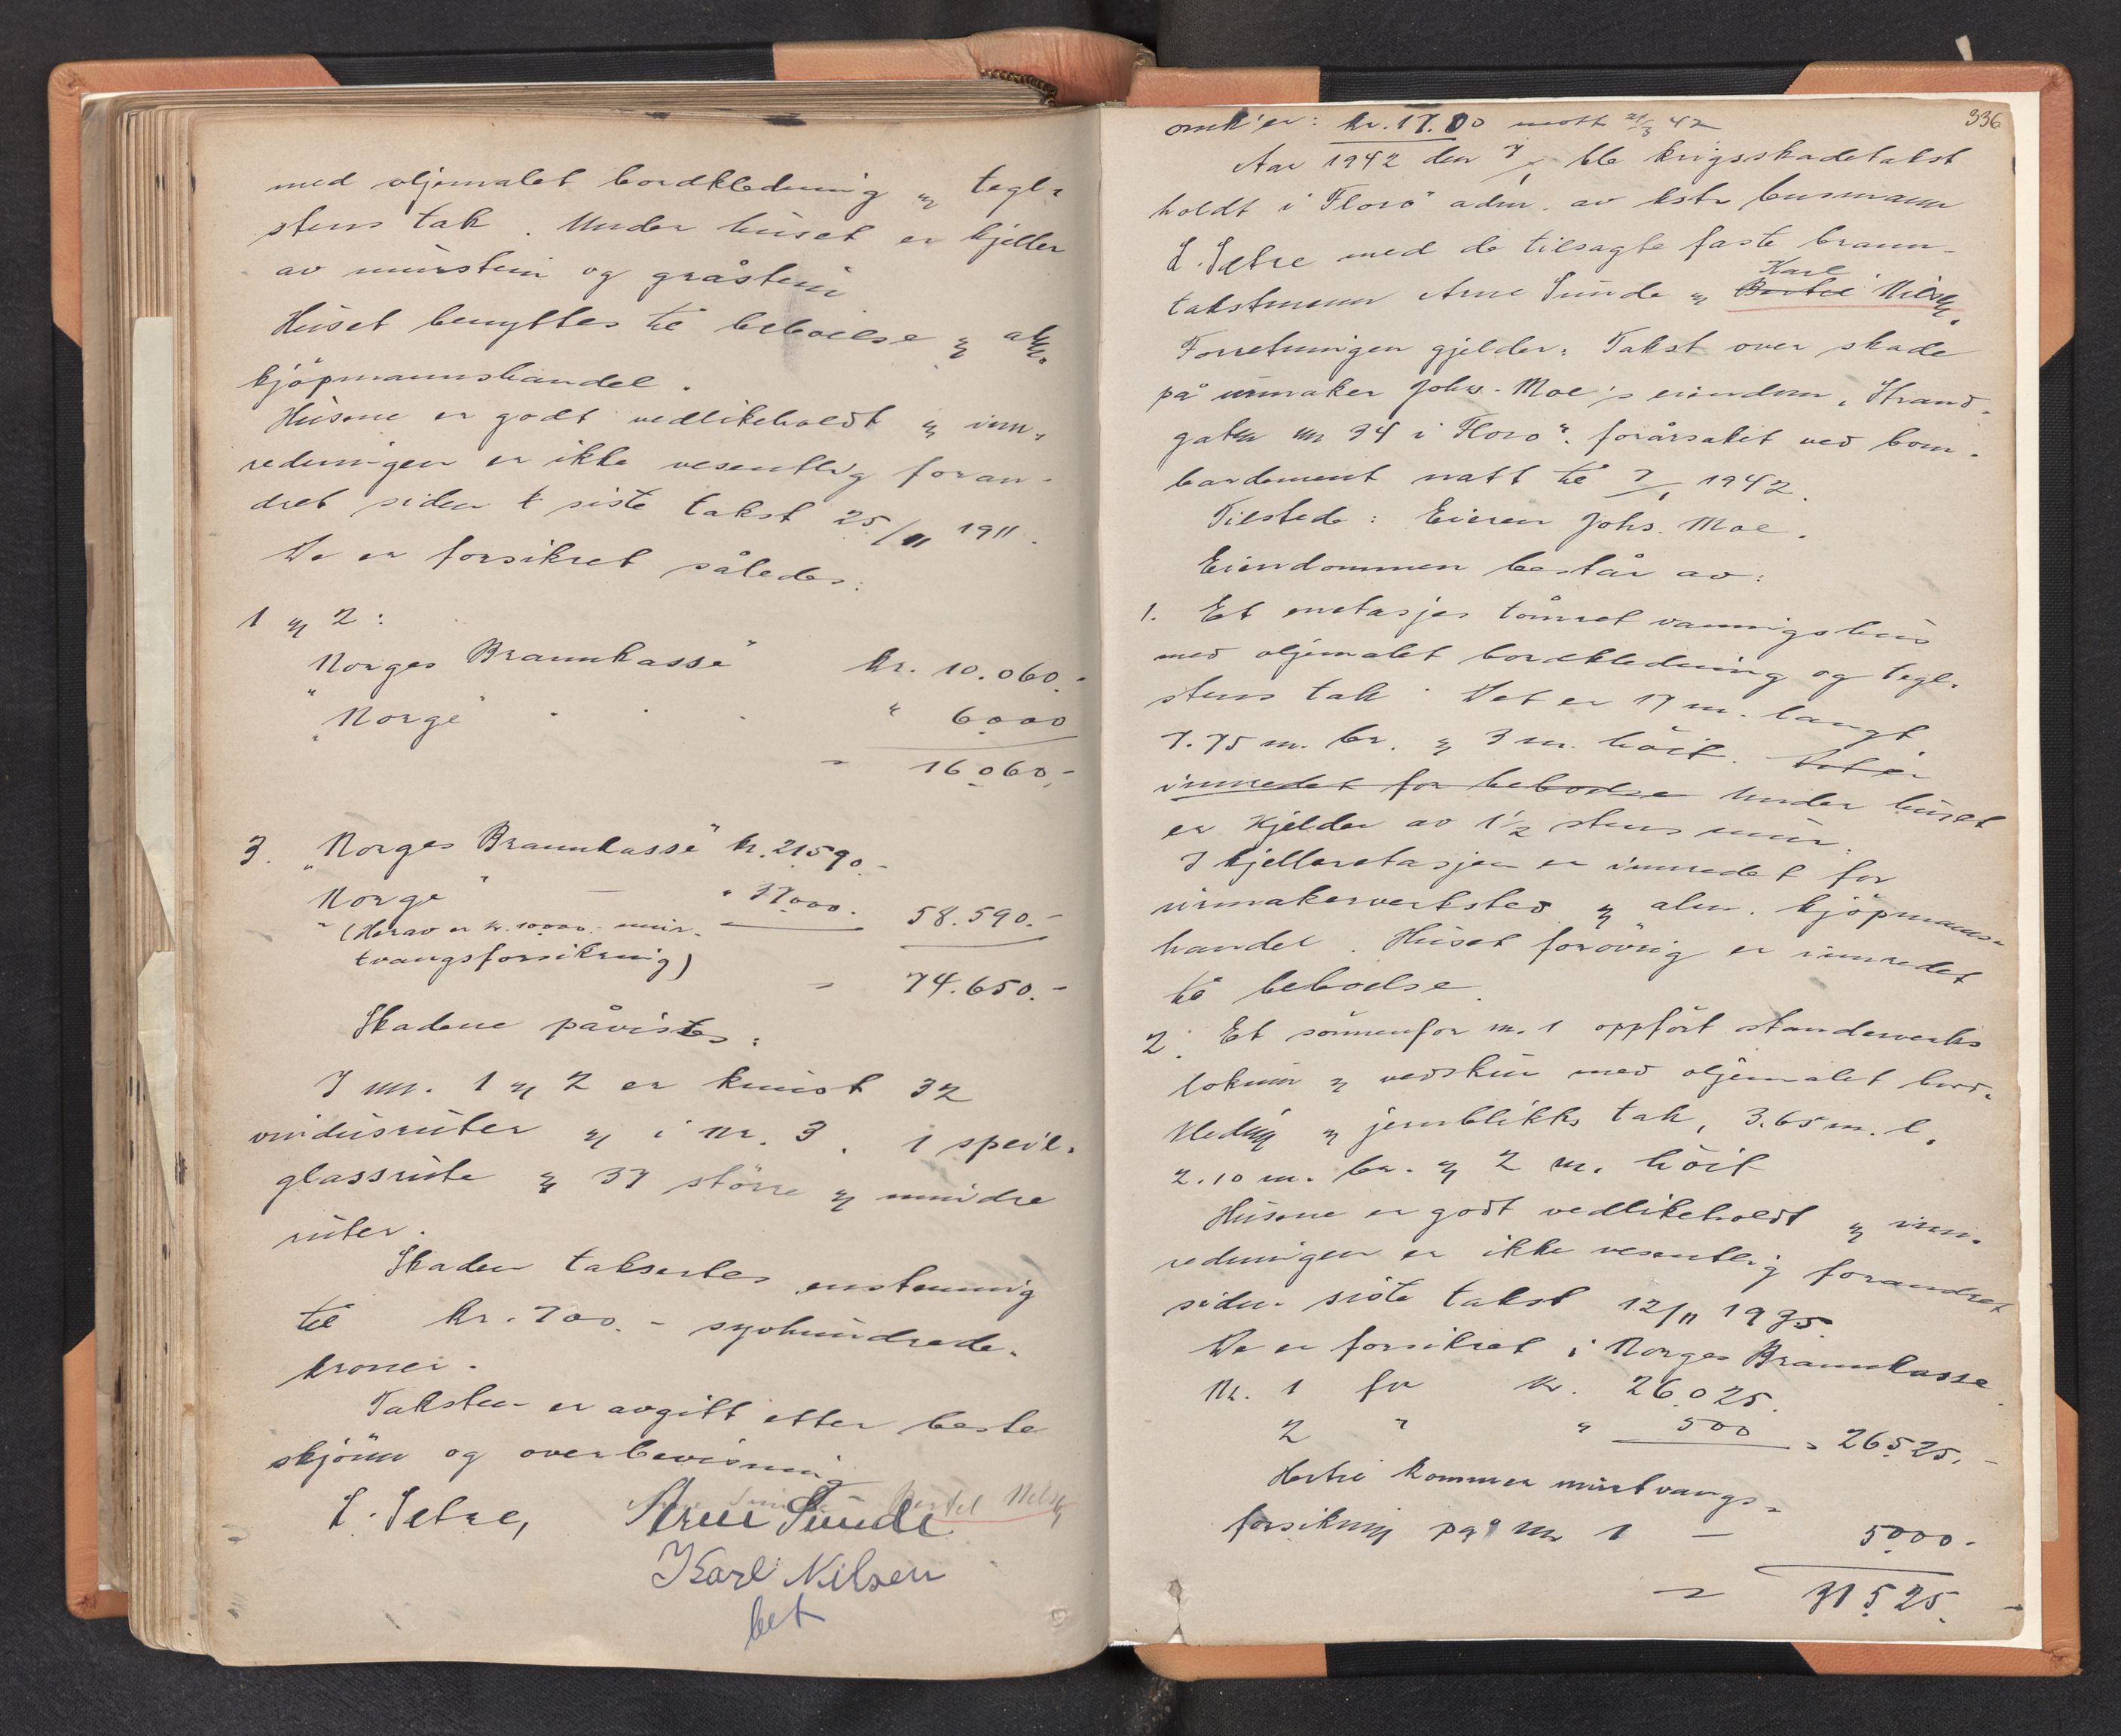 med oljemalet bordkledning og tegl-
stens tak. Under huset er kjeller
av murstein og gråstein
Huset benyttes til beboelse og alm.
kjöpmannshandel.
Husene er godt vedlikeholdt og inn-
redningen er ikke vesentlig foran-
dret siden siste takst 25/11 1911.
De er forsikret således:
1 og 2:
"Norges Brannkasse" kr. 10.060.-
"Norge" " 6000
- 16060,-
3. "Norges Brannkasse" kr. 21590.-
"Norge" - " 37000. 58.590.-
(Herav er kr. 10000.- mur-
tvangsforsikring)
- 74.650.-
Skadene påvistes:
I nr. 1 og 2 er knust 32
vindusruter og i nr. 3. 1 speil-
glassrute og 37 större og mindre
ruter.
Skaden takseertes enstemmig
til kr. 700.- syvhundrede-
kroner.
Taksten er avgitt etter beste
skjönn og overbevisning
L. Setre, Arne Sunde
Bertel Nilsen
Karl Nilsen
bet
336
omk'er: kr. 17.00 mott 21/3 42
Aar 1942 den 7/1 ble krigsskadetakst
holdt i Florö adm. av kst. lensmann
L. Setre med de tilsagte faste brann-
Karl
takstmenn Arne Sunde og Bertel Nilsen.
Forretningen gjelder: Takst over skade
på urmaker Johs. Moe's eiendom, "Strand-
gaten nr 34 i Florö". forårsaket ved bom-
bardement natt til 7/1 1942.
Tilstede: Eieren Johs. Moe.
Eiendommen består av:
1. Et enetasjes tömret våningshus
med oljemalet bordkledning og tegl-
stens tak. Det er 17 m. langt,
7.75 m. br. og 3 m. höit. Det er
innredet for beboelse Under huset
er kjelder av 1 1/2 stens mur.
I kjelleretasjen er innredet for
urmakerverksted og alm. kjöpmanns-
handel. Huset forövrig er innredet
til beboelse.
2. Et sönnenfor nr. 1 oppfört standerverks
lokum og vedskur med oljemalet bord-
kledning og jernblikks tak, 3.65 m. l.
2.10 m. br. og 2 m. höit
Husene er godt vedlikeholdt og inn-
redningen er ikke vesentlig forandret
siden siste takst 12/11 1935.
De er forsikret i Norges Brannkasse
Nr. 1 for kr. 26025.
2 " " 500 = 26525.-
Hertil kommer murtvangs-
forsikring på nr 1 - 5000.-
= 31525.